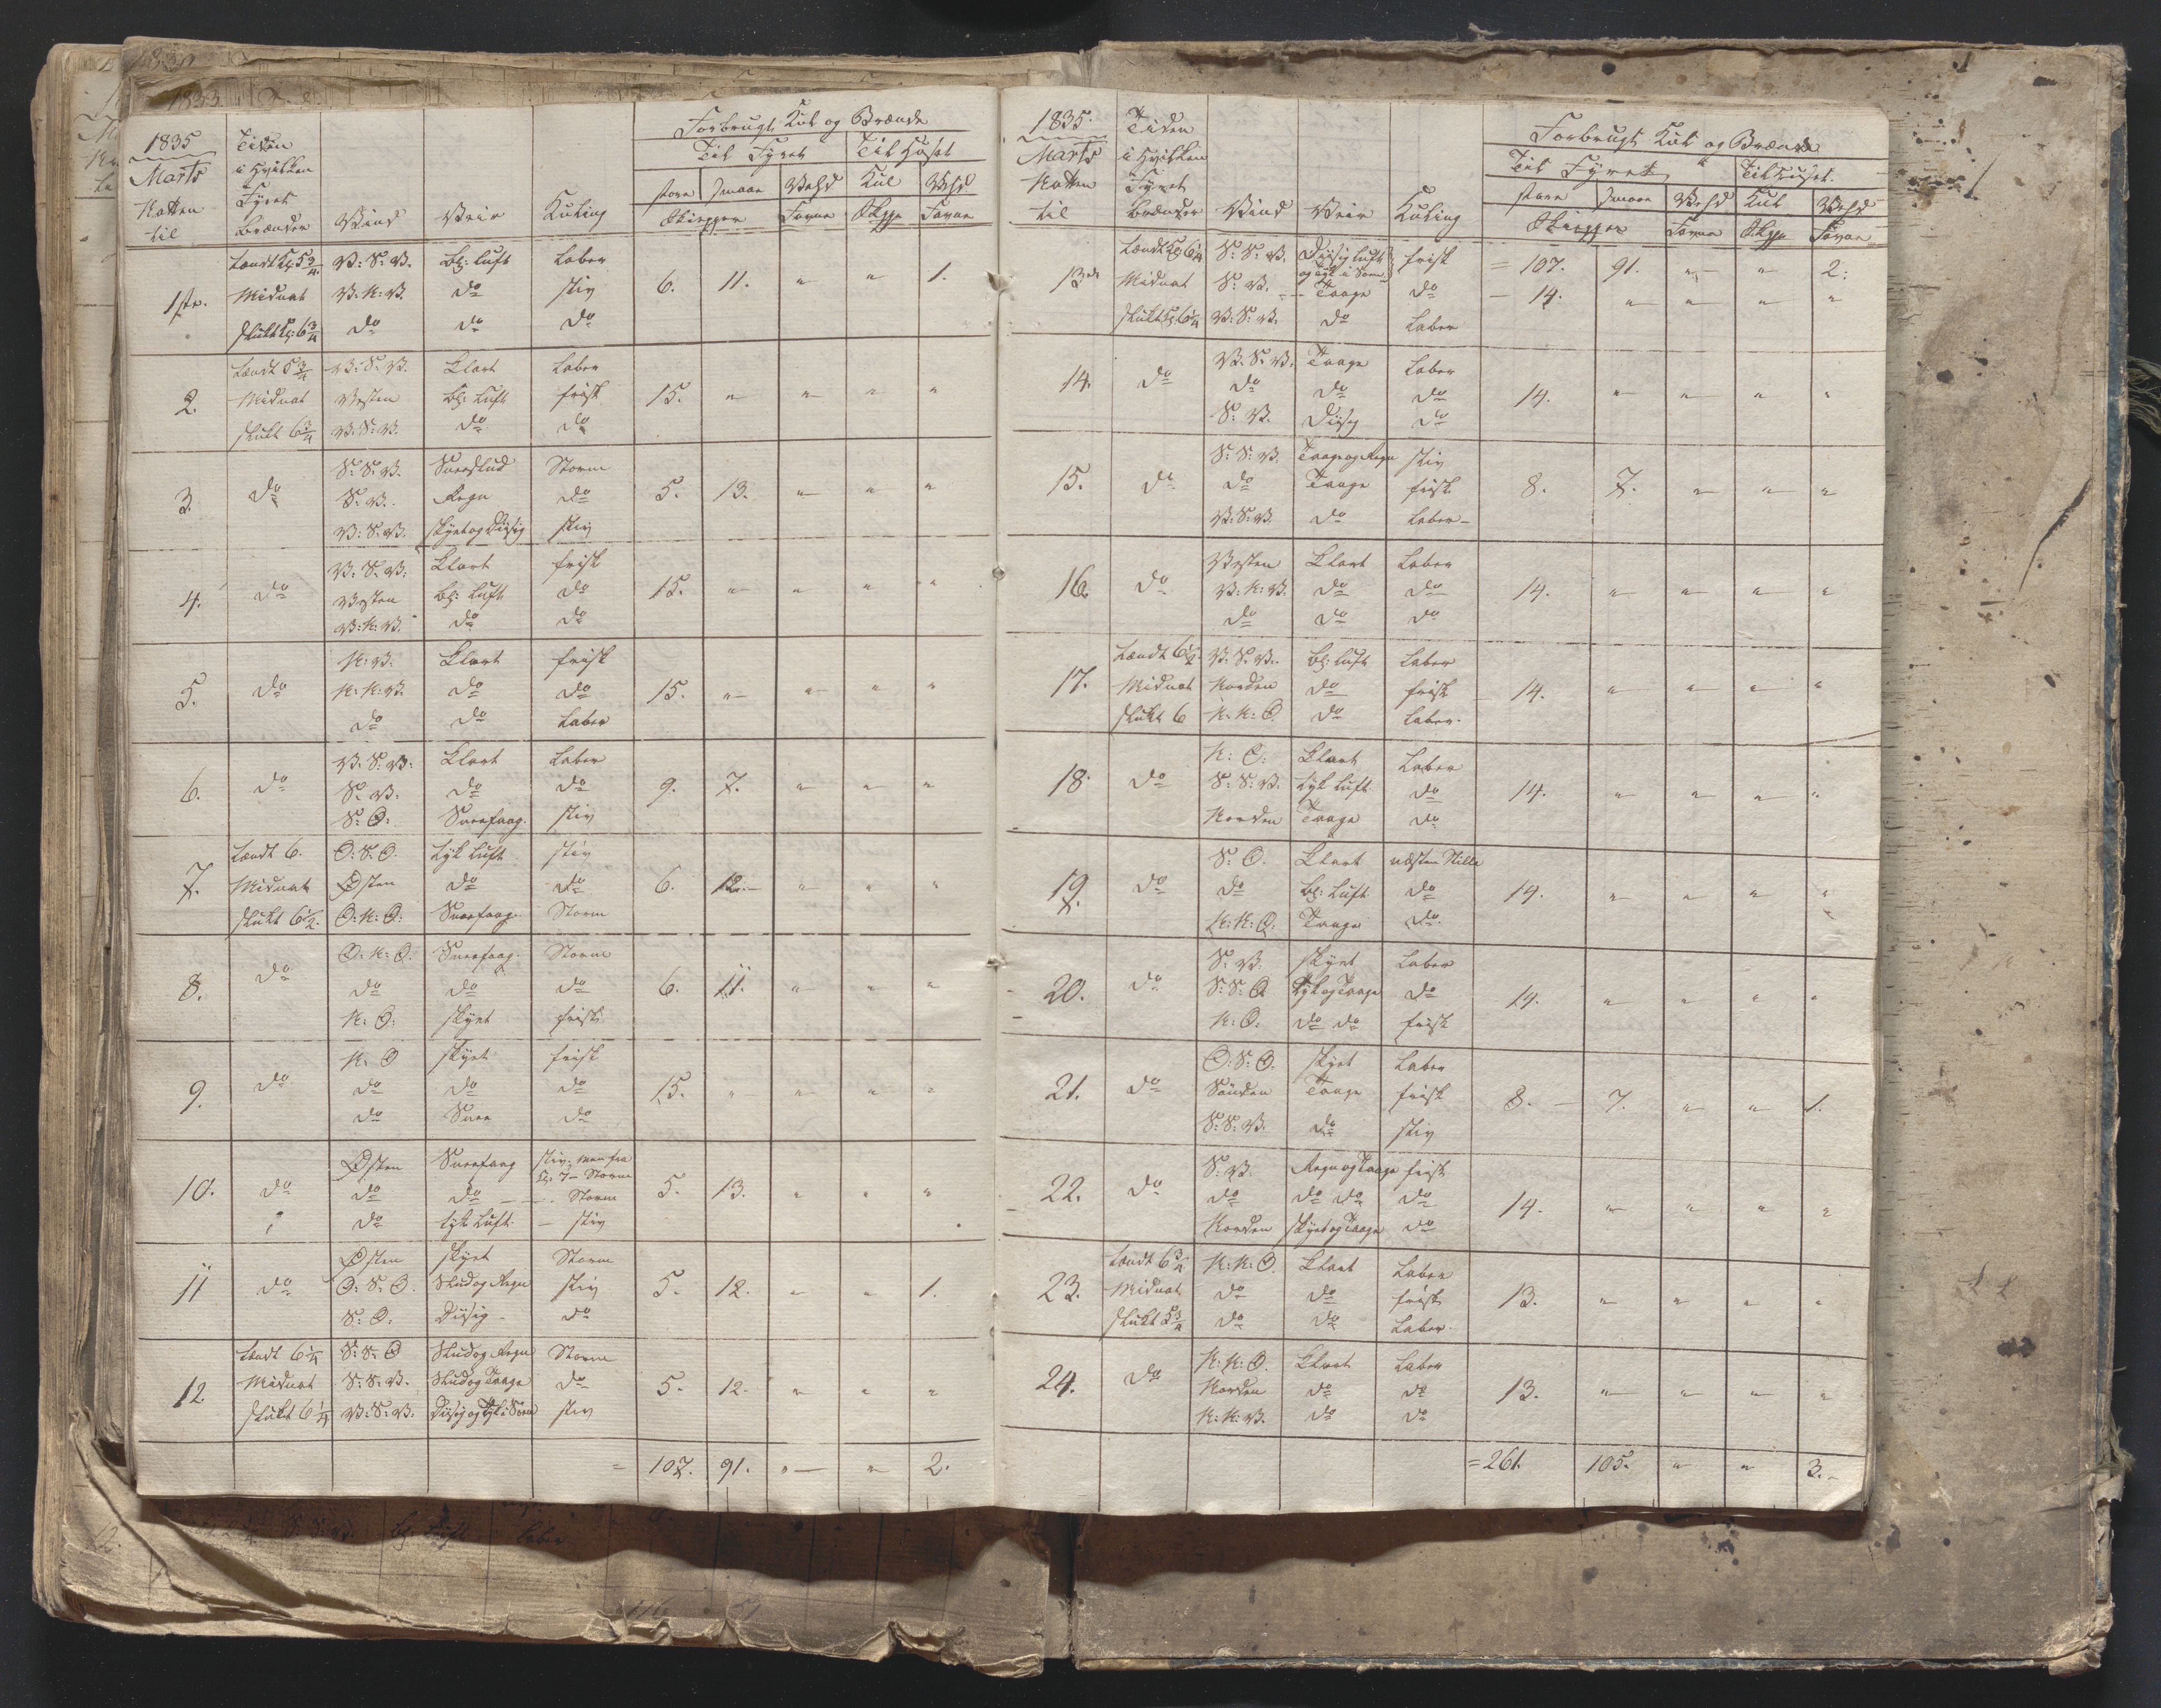 1835 Tiden Forbrugt Kul og Brænde
Marts i Hvilken Til Fyret Til Huset
Natten Fyret store smaae Vehd Kul Vehd
til Brænder Vind Veir Kuling Skiepper Favne Skpr Favne
tændt Kl: 5 3/4 V: S: V. bl: luft laber
1ste. Midnat V. N: V. do stiv 6. 11. " " 1.
slukt Kl: 6 3/4 do do do
tændt 5 3/4 V: S: V. Klart laber
2. Midnat Vesten bl: luft frisk 15. " " " "
slukt 6 3/4 V: S: V. do do
S: S: V. Sneeslud Storm
3. do S: V. Regn do 5. 13. " " "
V: S: V. skyet og Diisig stiv
V: S: V: Klart frisk
4. do Vesten bl: luft do 15. " " " "
V: N: V. do do
N: V. Klart frisk
5. do N: N: V. do do 15. " " " "
do do laber
V: S: V: Klart laber
6. do S: V: do do 9. 7. " " "
S: O: Sneefaag. stiv
tændt 6. O: S: O. tyk luft stiv
7. Midnat Østen do do 6. 12. " " "
slukt 6 1/2. O: N: O: Sneefaag. Storm
O: N: O: Sneefaag. Storm
8. do do do do 6. 11. " " "
N: O: skyet frisk
N: O skyet frisk
9. do do do do 15. " " " "
do Snee do
Østen Sneefaag stiv. men fra
Kl: 7 - Storm
10. do do do - - - Storm 5. 13. " " "
do tyk luft - stiv
Østen skyet Storm
11 do O: S: O. Slud og Regn stiv 5. 12. " " 1.
S: O: Diisig - do
tændt 6 1/4 S: S: O Slud og Regn Storm
12 Midnat S: S: V. Slud og Taage do 5. 12. " " "
slukt 6 1/4 V: S: V. Diisig og tyk i Søen stiv
= 107. 91. " " 2.
1835. Tiden Forbrugt Kul og Brænde
Marts i Hvilken Til Fyret Til Huset.
Natten Fyret store smaae Vehd Kul Vehd
til Brænder Vind Veir Kuling Skiepper Favne Skpr Favne
tændt Kl: 6 1/4 S: S: V. Diisig luft frisk = 107. 91. " " 2:
og tyk i Søen
13de Midnat S: V. - - Taage do - 14. " " " "
slukt Kl: 6 1/4 V: S: V. do laber
V: S: V. Taage laber
14. do do do do 14. " " " "
S: V. Diisig do
S: S: V. Taage og Regn stiv
15. do do Taage frisk 8. 7. " " "
V: S: V. do laber -
Vesten Klart laber
16. do V: N: V. do do 14. " " " "
do do do
tændt 6 1/2. V: S: V. bl: luft laber
17. Midnat Norden do frisk 14. " " " "
slukt 6 N: N: O. do laber.
N: O: Klart laber
18. do S: S: V. tyk luft do 14. " " " "
Norden Taage do
S: O. Klart næsten Stille
19. do do bl: luft do 14. " " " "
N: N: O. Taage do.
S: V. skyet laber
20. do S: S: O. tyk og Taage do 14. " " " "
N: O. do do frisk
O: S: O. skyet laber
21. do Sønden Taage frisk 8. - 7. " " 1.
S: S: V. do stiv
S: V. Regn og Taage frisk
22. do do do do do 14. " " " "
Norden skyet og Taage do
tændt 6 3/4 N: N: O. Klart laber
23. Midnat do do frisk 13. " " " "
slukt 5 3/4 do do laber.
N: N: O. Klart laber
24. do Norden do do 13. " " " "
N: N: V. do do
= 261. 105. " " 3. -